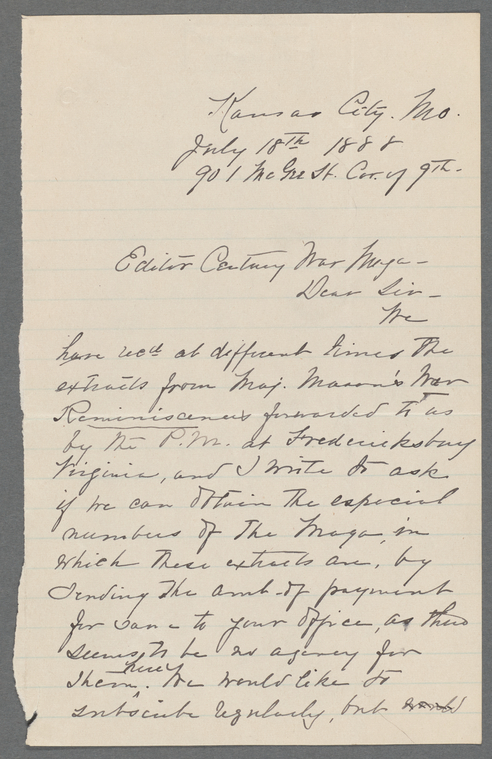 Kansas City. Mo.
July 18th 1888
901 McGee St. Cor. of 9th.
Editor Century War Maga-
Dear Sir-
We
have recd at different times the
extracts from Maj. Mason's War
Reminiscences forwarded to us
by the P.M. at Fredericksburg
Virginia, and I write to ask
if we can obtain the especial
numbers of the Maga, in
which these extracts are, by
sending the amt-of payment
for same to your office, as there
seems to be no agency for
them here. We would like to
subscribe regularly, but would